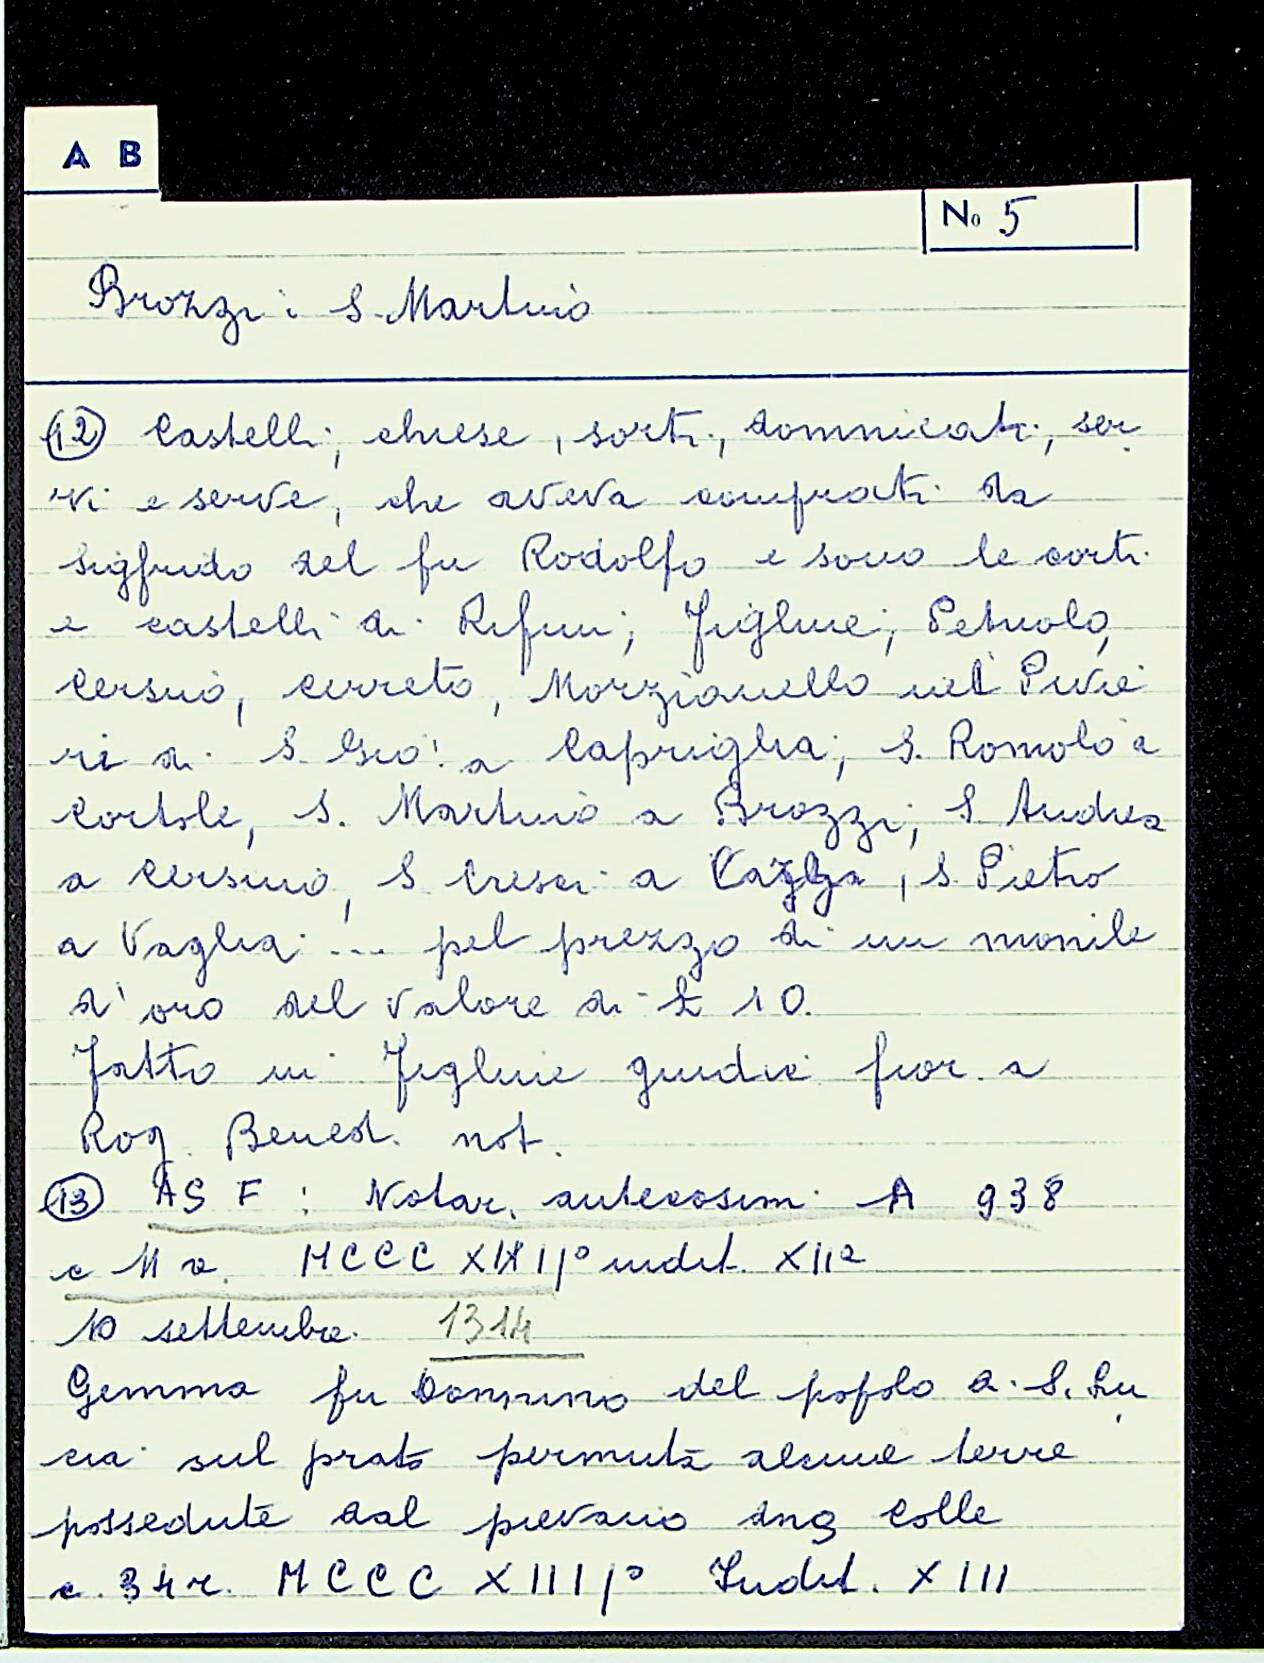 A B
No 5
Brozzi: S. Martino
(12) Castelli, chiese, sorti, domnicati, ser
vi e serve, che aveva comprati da
Sigfrido del fu Rodolfo e sono le corti
e castelli di Rifini, Figline, Petriolo,
Cersino, Cerreto, Morzianello nel Pivie
ri di S. Gio: a Capriglia, S. Romolo a
Cortole, S. Martino a Brozzi, S Andrea
a Cersino, S. Cresci a , S. Pietro
a Vaglia ... pel prezzo di un monile
d'oro del valore di £ 10.
Fatto in Figline giudici fior. a
Rog. Bened. not.
(13) ASF: Notar. antecosim. A 938
c 11 v. MCCC indit. XIIa
10 settembre. 1314
Gemma fu Donnino del popolo a. S. Lu
cia sul prato permuta alcune terre
possedute dal pievano Colle
c. 34r. MCCC XIIIJ° Indit. XIII